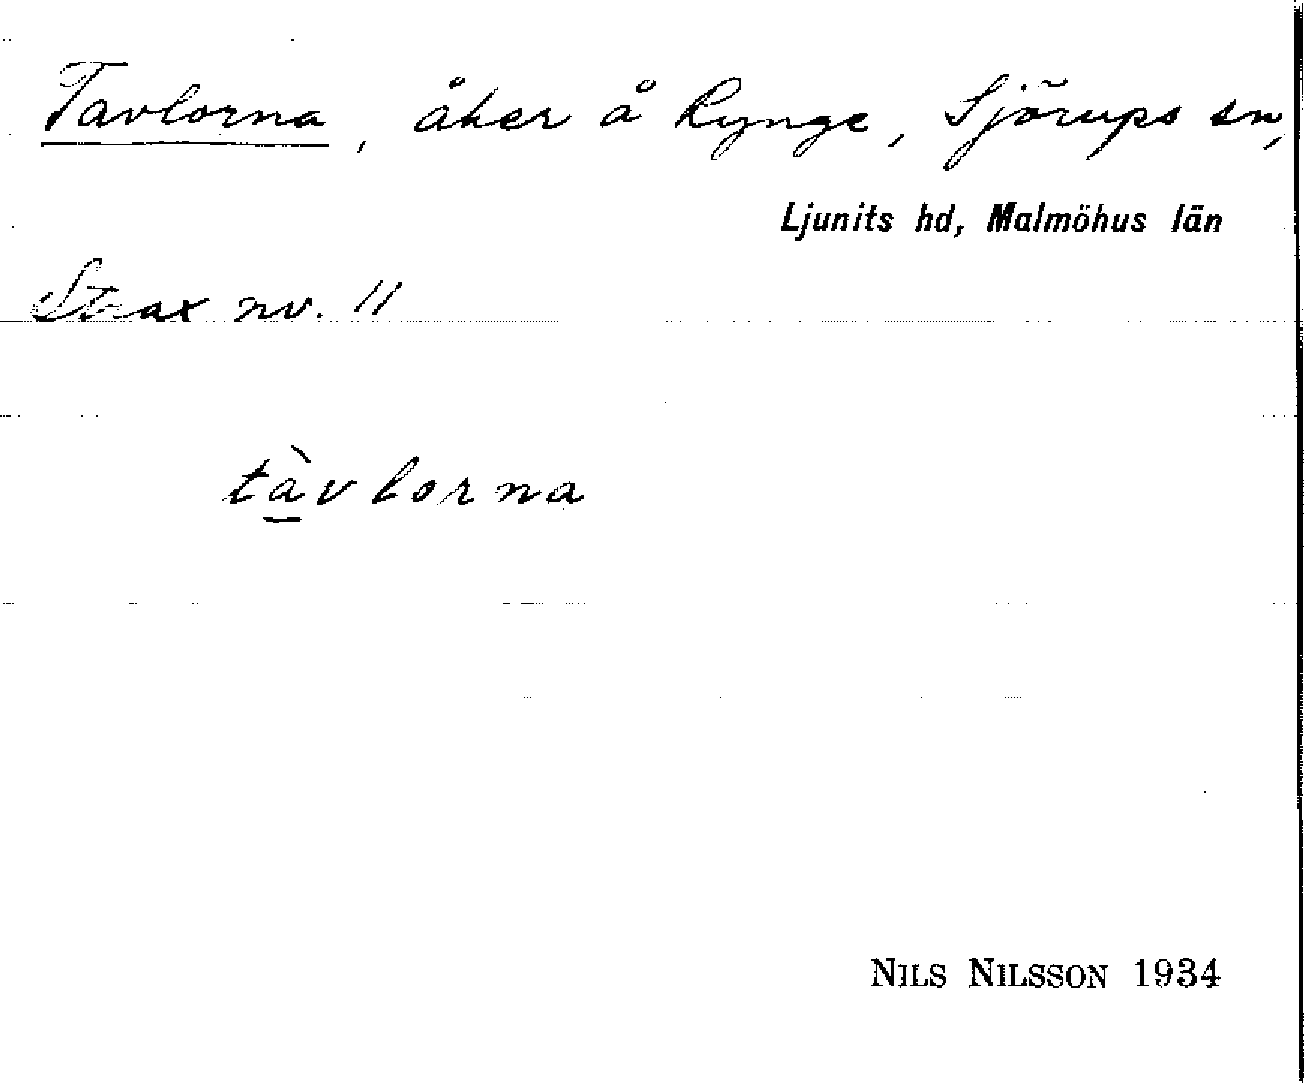 Tavlorna, åker å Rynge, Sjörups sn,
Ljunits hd, Malmöhus län
Strax nv. 11
tàvlorna
NILS NILSSON 1934